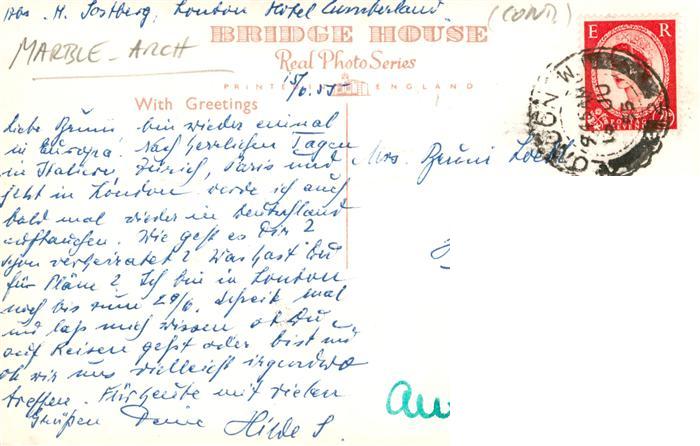 Abs. H. Sostberg, London Hotel Cumberland
(CONT.)
MARBLE-ARCH
BRIDGE HOUSE
Real Photo Series
PRINTED ENGLAND
15/6.55
With Greetings
E R
LONDON W.
Liebe Bruni bin wieder einmal
in Europa. Nach herrlichen Tagen
in Italien, Zürich, Paris und
jetzt in London werde ich auch
bald mal wieder in Deutschland
auftauchen. Wie geht es Dir?
Schon verheiratet? Was hast Du
für Pläne? Ich bin in London
noch bis zum 29/6. Schreib mal
und laß mich wissen ob Du
auf Reisen gehst oder bist und
ob wir uns vielleicht irgendwo
treffen. Für heute mit vielen
Grüßen Deine Hilde S.
Mrs. Bruni